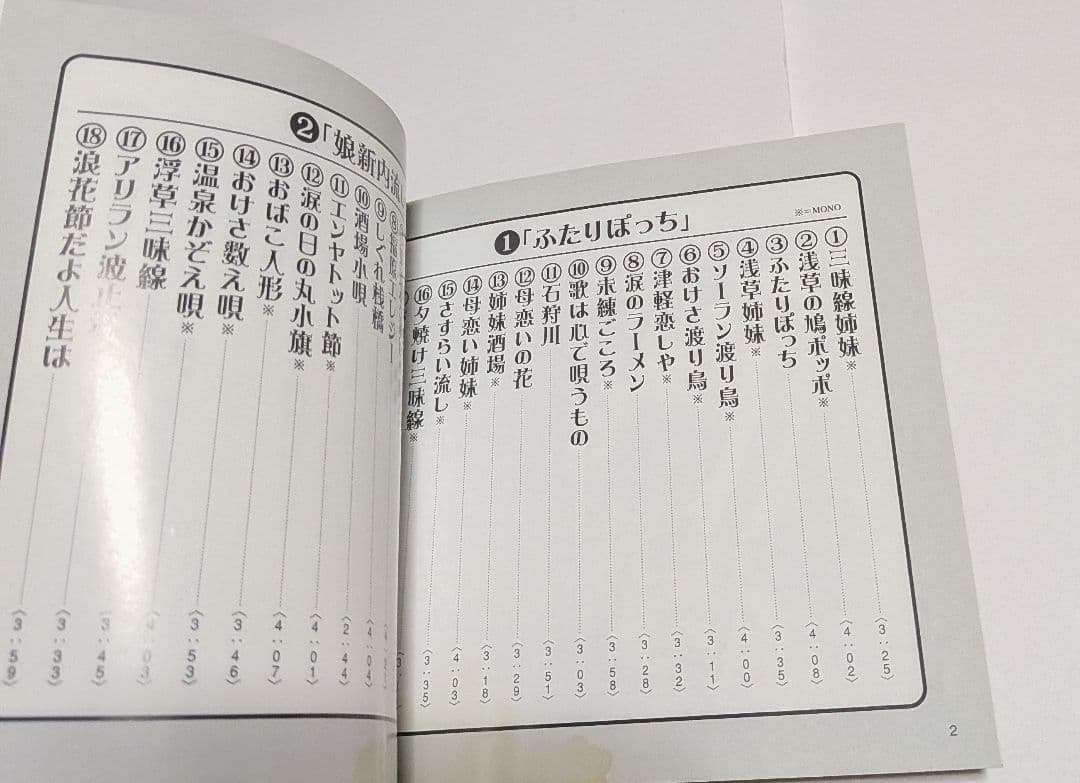 ※=MONO
❶「ふたりぽっち」
①三味線姉妹※〈3:25〉
②浅草の鳩ポッポ※〈4:02〉
③ふたりぽっち〈4:08〉
④浅草姉妹※〈3:35〉
⑤ソーラン渡り鳥※〈4:00〉
⑥おけさ渡り鳥※〈3:11〉
⑦津軽恋しや※〈3:32〉
⑧涙のラーメン〈3:28〉
⑨未練ごころ※〈3:58〉
⑩歌は心で唄うもの〈3:03〉
⑪石狩川〈3:51〉
⑫母恋いの花〈3:29〉
⑬姉妹酒場※〈3:18〉
⑭母恋い姉妹※〈4:03〉
⑮さすらい流し※〈3:35〉
⑯夕焼け三味線※〈3:
2
❷「娘新内流
⑨しぐれ桟橋〈4:04〉
⑩酒場小唄〈2:44〉
⑪エンヤトット節※〈4:01〉
⑫涙の日の丸小旗※〈4:07〉
⑬おばこ人形※〈3:46〉
⑭おけさ数え唄※〈3:53〉
⑮温泉かぞえ唄※〈4:03〉
⑯浮草三味線〈3:45〉
⑰アリラン波止〈3:33〉
⑱浪花節だよ人生は〈3:59〉